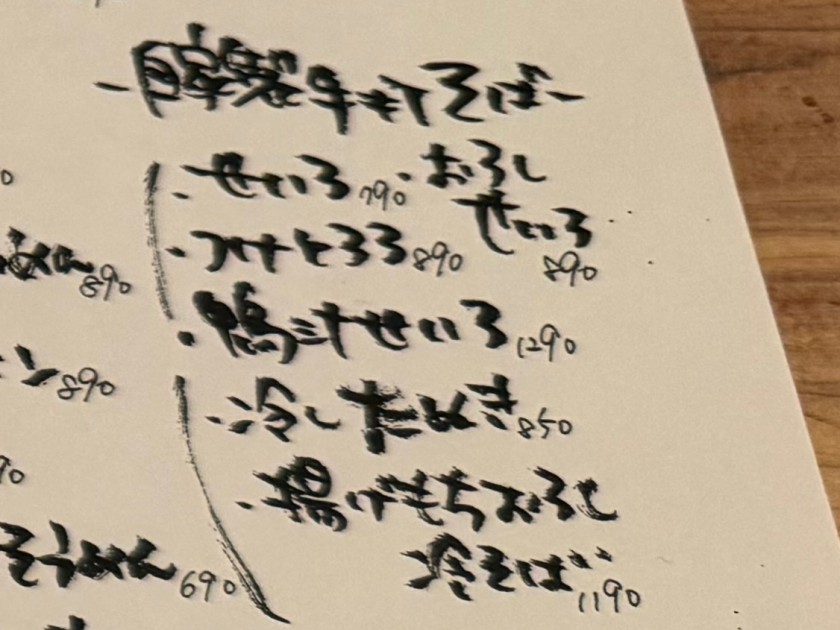 自家製手打そば
・せいろ790
・おろしせいろ890
・つけとろろ890
・鴨汁せいろ1290
・冷したぬき850
・揚げもちおろし
冷そば1190
めん890
ン890
90
そうめん690